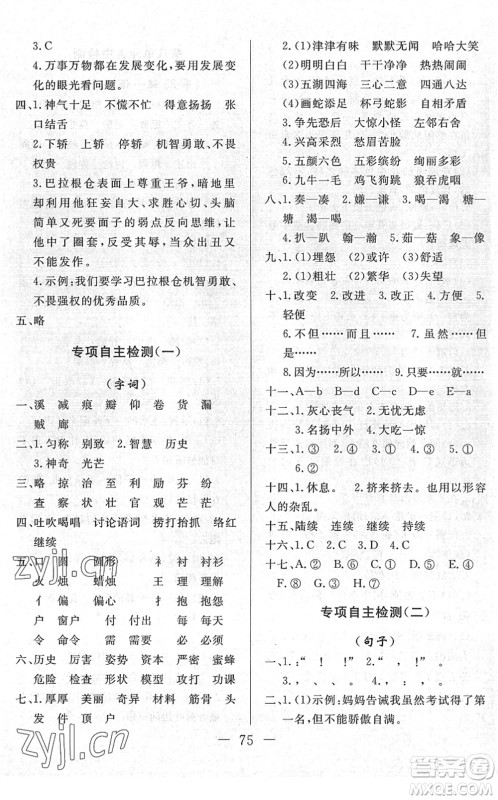 3. C
4. 万事万物都在发展变化，要用发展变化
的眼光看问题。
四、1. 神气十足　不慌不忙　得意扬扬　张
口结舌
2. 下轿　上轿　停轿　机智勇敢、不畏
权贵
3. 巴拉根仓表面上尊重王爷，暗地里
却利用他狂妄自大、求胜心切、头脑
简单又死要面子的弱点反向思维，让
他中了圈套，反受其辱，而又当众
不能发作。
4. 示例：我们要学习巴拉根仓机智勇敢、
不畏强权的优秀品质。
五、略
专项自主检测(一)
(字词)
一、溪　减　痕　瓣　仰　卷　货　漏
贼　廊
二、1. 匀称　别致　2. 智慧　历史
3. 神奇　光芒
三、略　掠　治　至　利　励　芬　纷
查　察　状　壮　官　观　芒　茫
四、吐吹喝唱　讨论语词　捞打持拾　络红
继续
五、口　圆　圆形　衤　衬　衬衫
火　烛　蜡烛　扌　抱　抱怨
亻　偏　偏偏　心　想　想象
户　窗　窗户　付　付出
令　命　命令　需　必　必须
六、历史　厉害　姿势　资料　严密　蜜蜂
危险　检查　形体　模型　力量
七、1. 厚厚　美丽　奇异　材料　筋骨　头
发　件　顶　户
2. (1)津津有味　默默无闻　哈哈大笑
(2)明明白白　干干净净　热热闹闹
(3)五湖四海　三心二意　四通八达
(4)画蛇添足　杯弓蛇影　掩耳盗铃
3. 争先恐后　大惊小怪　左邻右舍
4. 兴高采烈　愁眉苦脸
5. 五颜六色　五彩缤纷　
6. 九牛一毛　鸡飞狗跳　狼吞虎咽
八、1. 奏—凑　嫌—谦　喝—渴　糖—
塘
3. 扒　趴　翰　瀚　茹　菇　象　像
九、1. (1)埋怨　(2)或许　(3)舒适
2. (1)粗壮　(2)繁华　(3)失望
十、1. 改变　2. 改正　3. 轻松　4.
轻便
5. 不但……而且……　6. 虽然……
但是……
8. 因为……所以……　9. 只要……就……
十一、A—b　B—d　C—e　D—c　E—a
十二、1. 灰心丧气　2. 摇头晃脑
3. 名扬中外　4. 大吃一惊
十三、1. ③　2. ①　3. ②　4. ①　5. ①
6. ②
十四、1. 休息。　2. 挤来挤去。也用以形容
人的杂乱。
十五、陆续　连续　继续　持续
十六、1. C　2. C　3. B　4. D
十七、A. ②　B. ①　C. ④　D. ⑤　E. ⑥
F. ⑧
专项自主检测(二)
(句子)
一、1. ：“　！　！”　2. “　！”　，
　。　　，　、　，　。
二、1. (1)示例：妈妈告诫我虽然考试得了第
一名，但不能骄傲自满。
— 75 —
zyjl.cn
zyjl.cn